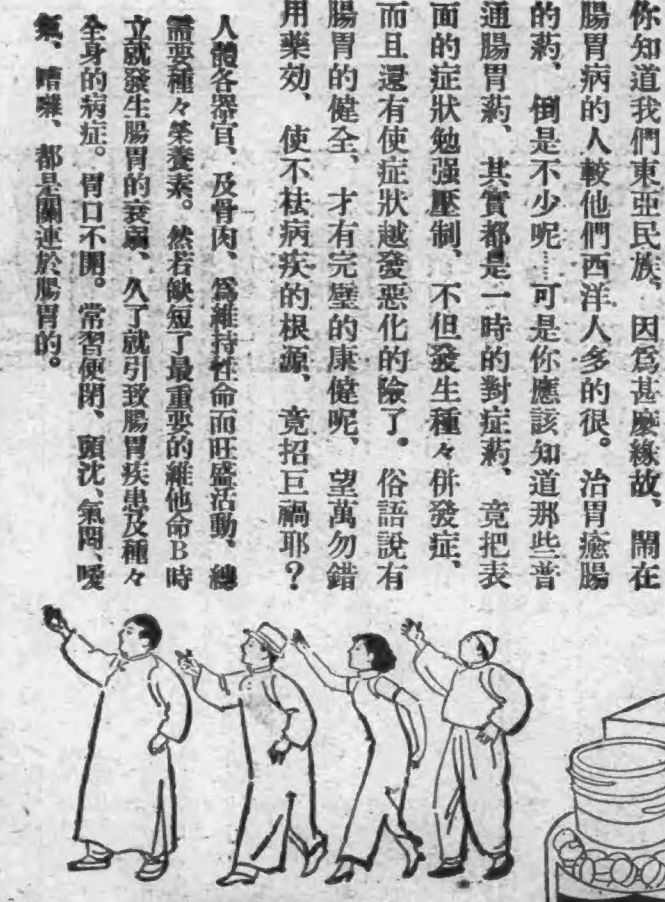 你知道我們東亞民族、因爲甚麼緣故、鬧在
腸胃病的人較他們西洋人多的很。治胃癒腸
的葯、倒是不少呢……可是你應該知道那些普
通腸胃葯、其實都是一時的對症葯、竟把表
面的症狀勉强壓制、不但發生種々併發症、
而且還有使症狀越發惡化的險了。俗語說有
腸胃的健全、才有完璧的康健呢、望萬勿錯
用藥効、使不袪病疾的根源、竟招巨禍耶？
人體各器官、及骨肉、爲維持性命而旺盛活動、總
需要種々榮養素。然若缺短了最重要的維他命B時
立就發生腸胃的衰弱、久了就引致腸胃疾患及種々
全身的病症。胃口不開。常習便閉、頭沈、氣悶、噯
氣、嘈囃、都是關連於腸胃的。